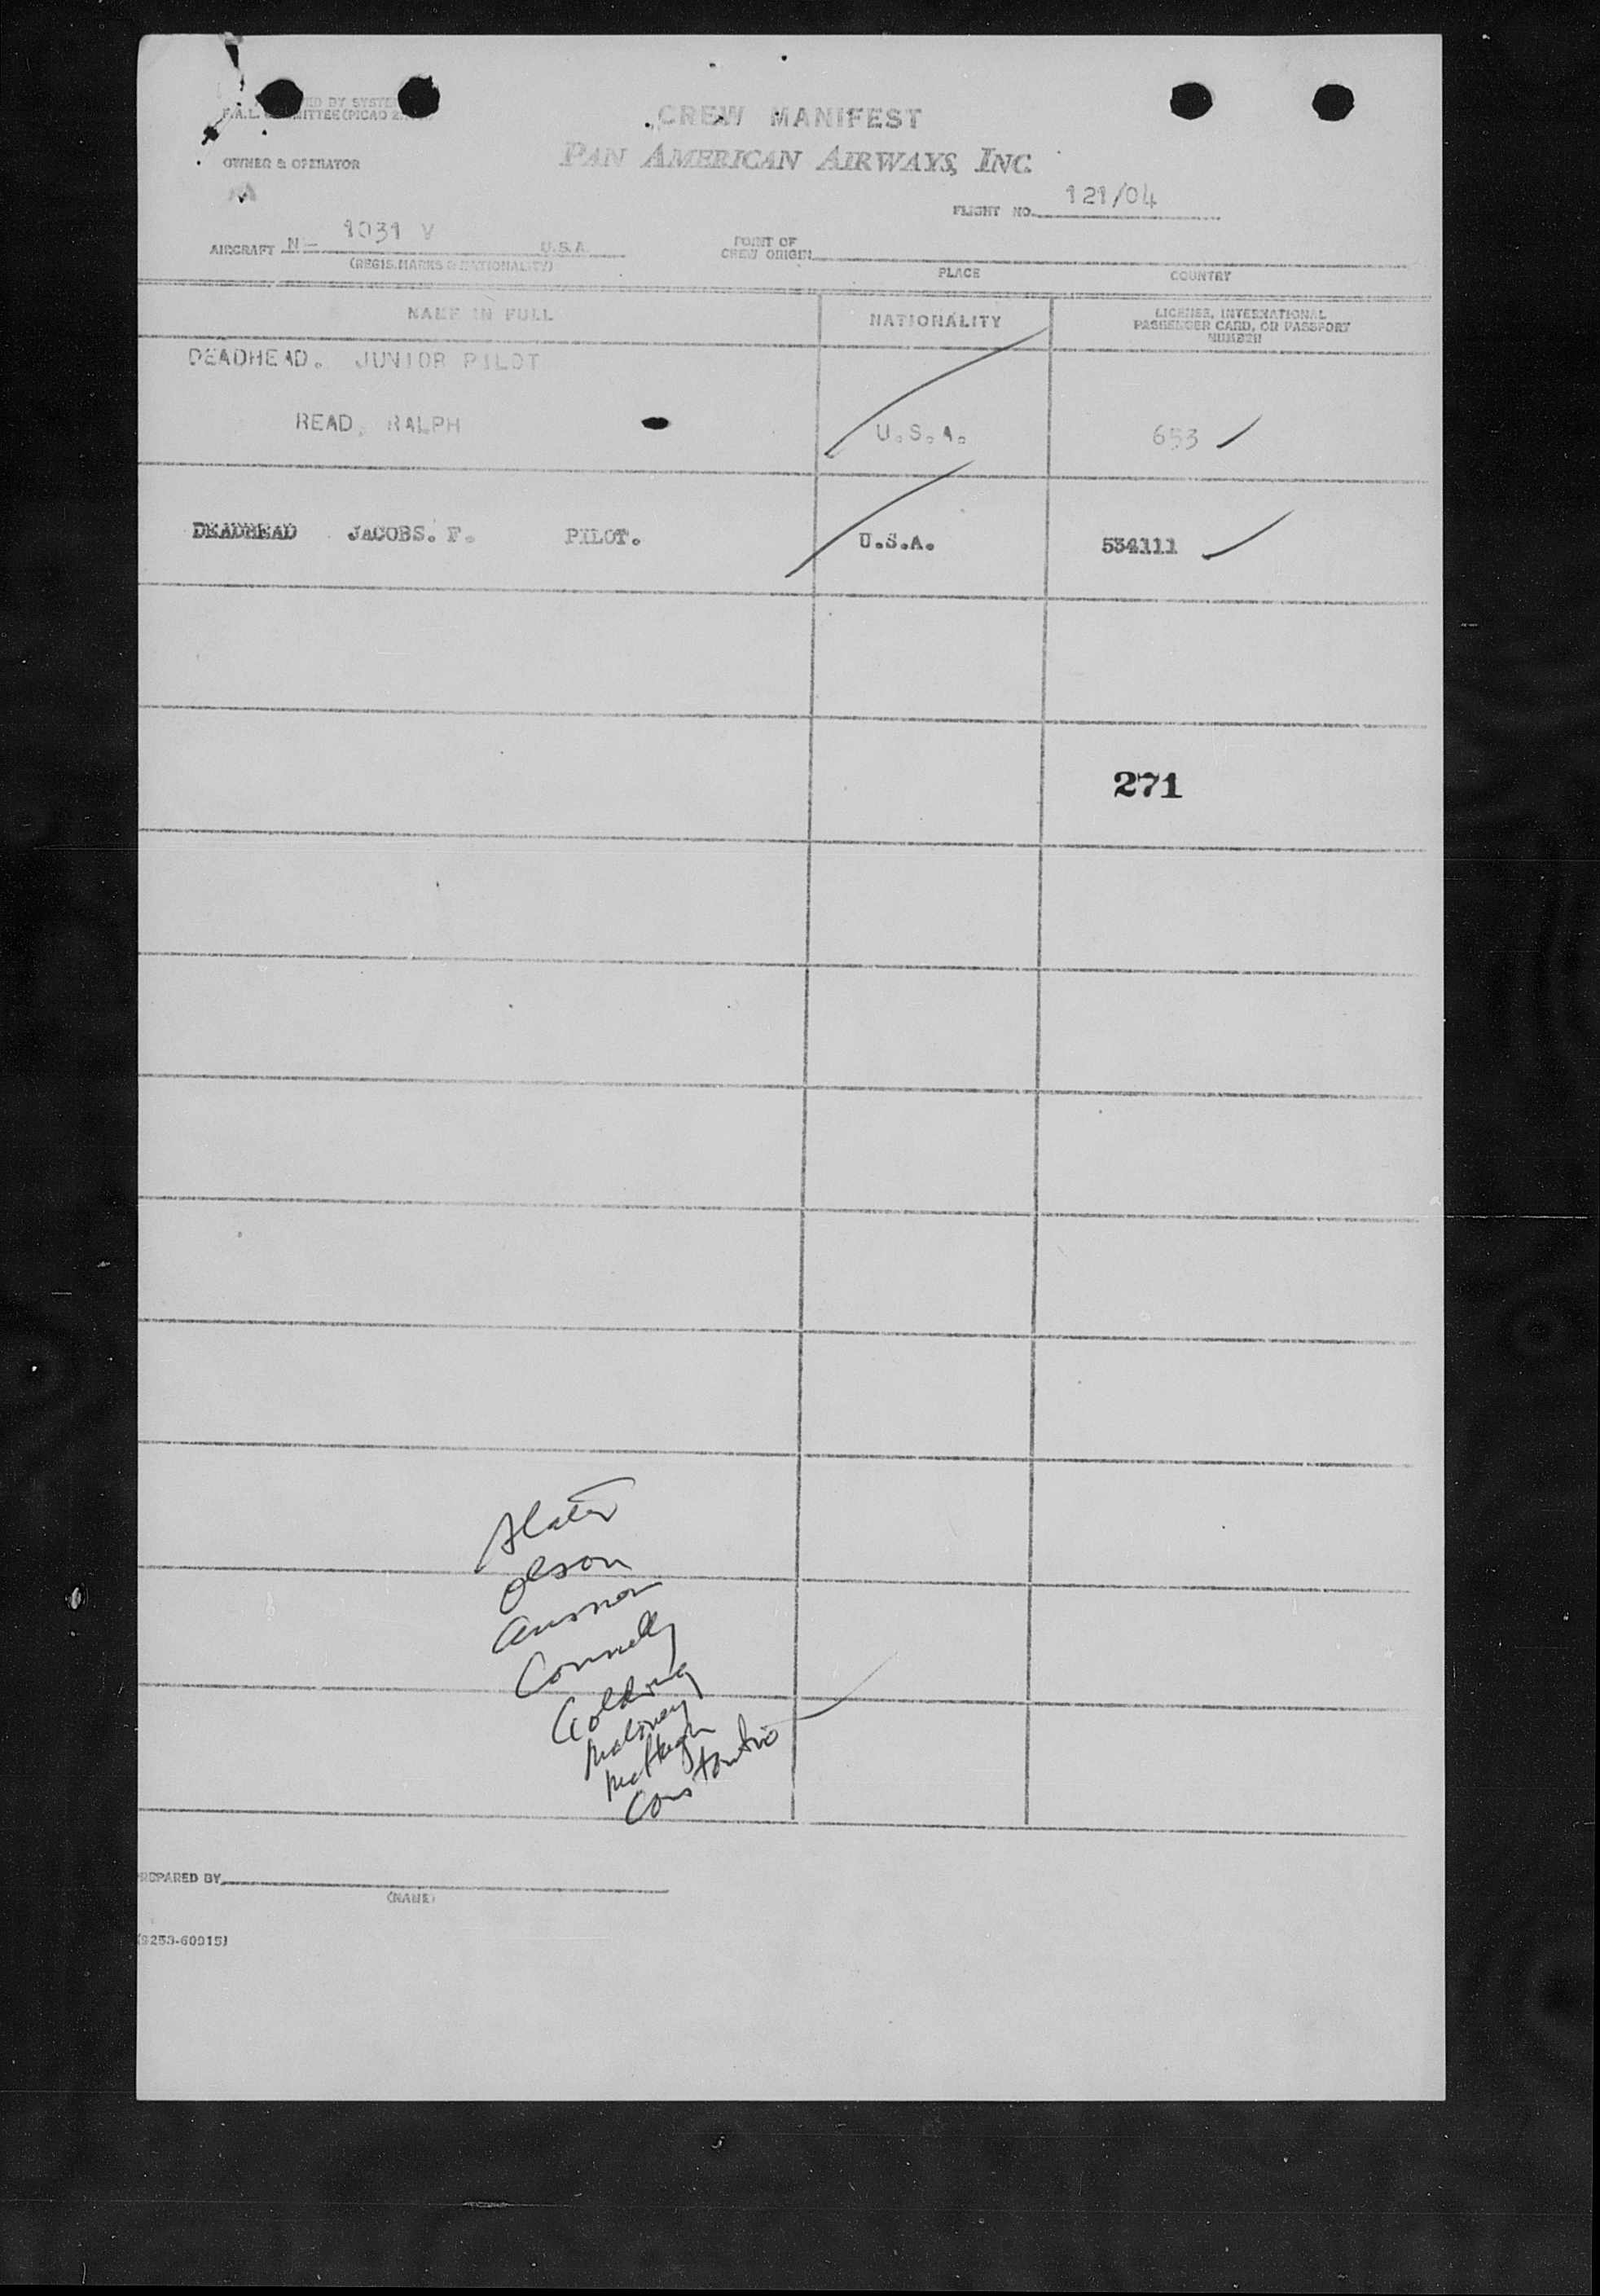 BY SYSTE
CREW MANIFEST
OWNER & OPERATOR
PAN AMERICAN AIRWAYS, INC.
FLIGHT NO. 121/04
AIRCRAFT N- 1031 V U.S.A.
POINT OF
CREW ORIGIN
(REGIS. MARKS & NATIONALITY)
PLACE
COUNTRY
NAME IN FULL
NATIONALITY
LICENSE, INTERNATIONAL
PASSENGER CARD, OR PASSPORT
NUMBER
DEADHEAD. JUNIOR PILOT
READ, RALPH U.S.A. 653
DEADHEAD JACOBS. F. PILOT. U.S.A. 534111
271
Slater
Olson
Connelly
Golding
PREPARED BY
(NAME)
(9253-60915)